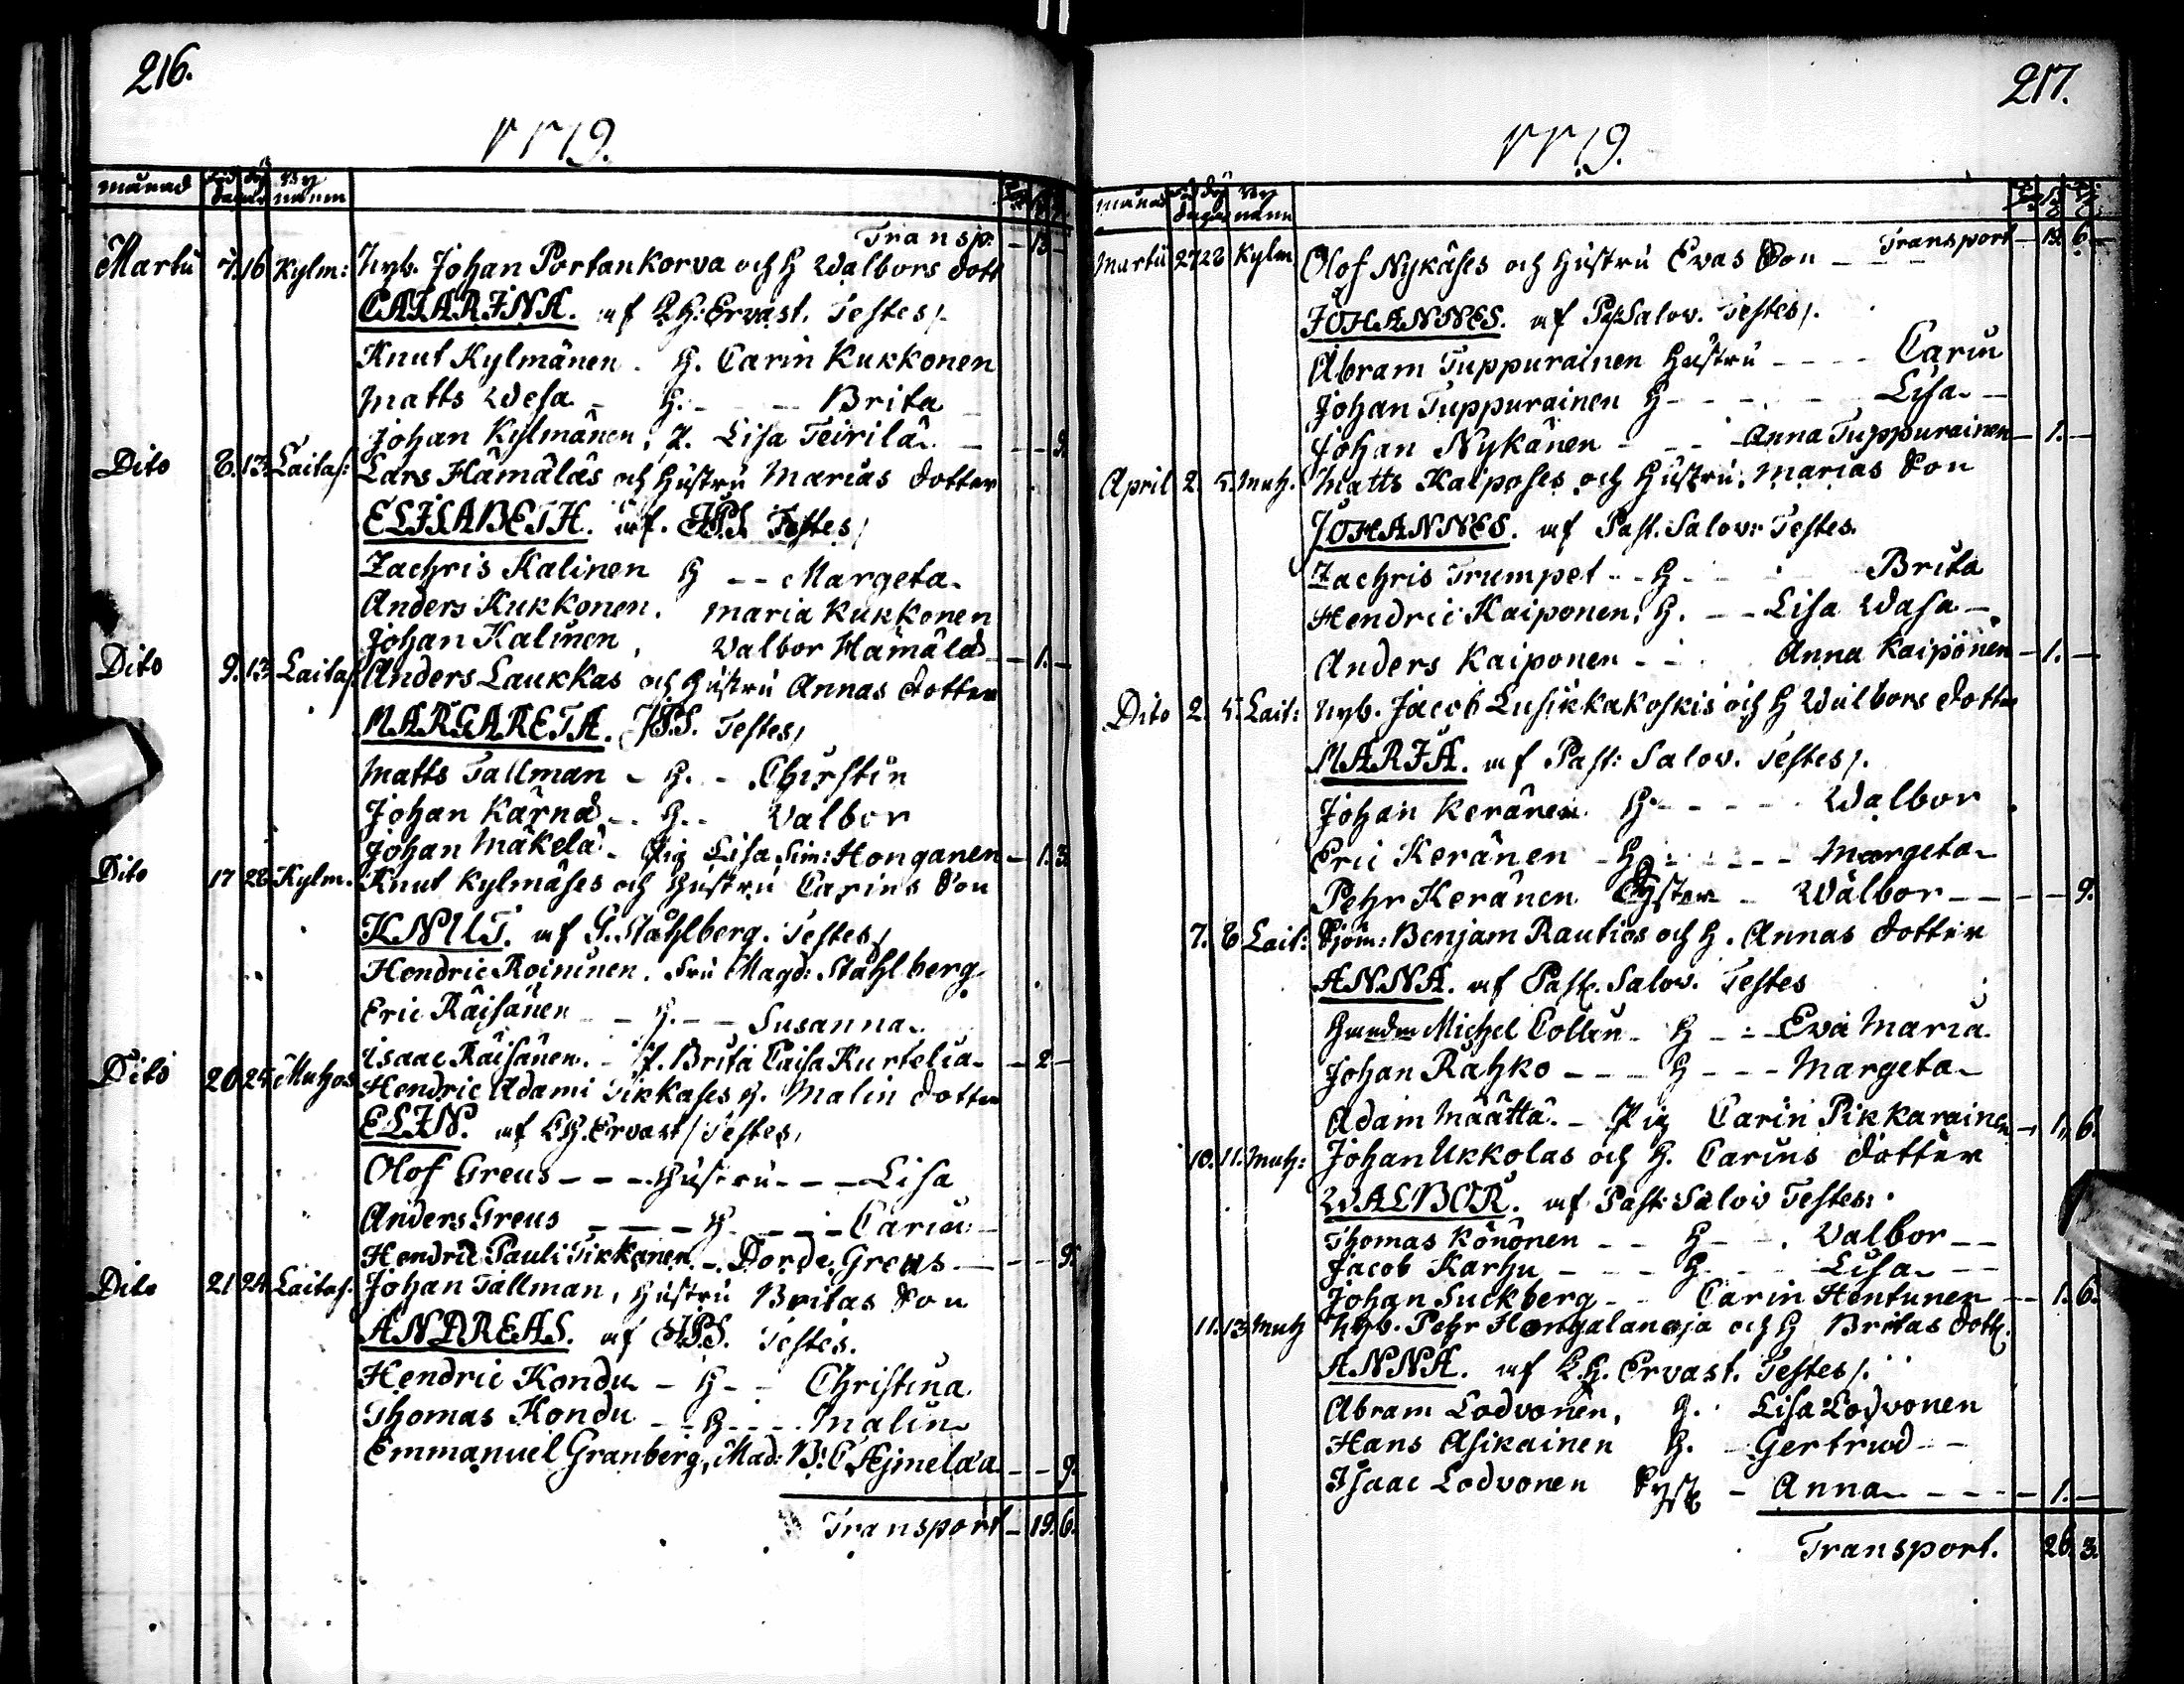 216.
1779.
månad föd dag döp dagar By namn
Transp. - 13 -
Martii 7. 16 Kylm: Nyb. Johan Portankorva och H Walbors dott
CATARINA. af L H: Ervast. Testes/.
Knut Kylmänen. H. Carin Kukkonen
Matts Wesa - H. - - Brita
Johan Kylmänen, P. Lisa Teirilä - - - 9.
Dito 8. 13 Laitas: Lars Hämäläs och Hustru Marias dotter
ELISABETH. af. JPS Testes/
Zachris Kalinen H -- Margeta-
Anders Kukkonen. Maria Kukkonen
Johan Kalinen, Valbor Hämälä - 1. -
Dito 9. 13 Laitas. Anders Laukkas och Hustru Annas dotter
MARGARETA. JPS. Testes/
Matts Tallman - H. - Chirstin
Johan Kärnä -. H.. Valbor
Johan Mäkelä - Pig Lisa Sim: Honganen - 1. 3.
Dito 17 28 Kylm. Knut Kylmäses och Hustru Carins Son
KNUT. af G. Ståhlberg. Testes/
Hendric Roininen. Fru Magd: Ståhlberg
Eric Räisänen - - H. - - Susanna..
Isaac Räisänen. - P. Brita Caisa Kurtelia - - 2 -
Dito 20 24 Muhos Hendric Adami Tikkases H. Malin dotter
ELIN. af L H. Ervast/ Testes,
Olof Greus - - - Hustru - - - Lisa
Anders Greus - - - H - - - Carin -
Hendric Pauli Tikkanen - Dorde Greus - - - 9.
Dito 21 24 Laitas. Johan Tallman, Hustru Britas Son
ANDREAS. af JPS. Testes.
Hendric Kondu - H - - Christina
Thomas Kondu - - H - - - Malin -
Emmanuel Granberg, Mad: B: C Æjmelæa - - 9.
Transport - 19. 6.
217.
1779.
månad föd dag döp dagar By namn
Transport - 19. 6.
Martii 27 28 Kylm Olof Nykäses och Hustru Evas Son -
JOHANNES. af Past Salov. Testes/.
Abram Tuppurainen Hustru - - - - Carin
Johan Tuppurainen H - - - - - Lisa - -
Johan Nykänen - - - Anna Tuppurainen - 1. -
April 2. 5. Muh. Matts Kaiposes och Hustru Marias Son
JOHANNES. af Past. Salov: Testes.
Zachris Trumpet - - H - - Brita
Hendric Kaiponen, H. - - Lisa Wasa -
Anders Kaiponen - - . Anna Kaiponen - 1. -
Dito 2. 5. Lait: Nyb. Jacob Lusikkakoskis och H Walbors dotter
MARIA. af Past: Salov. Testes/.
Johan Keränen H - - - - - Walbor
Eric Keränen - H - - - - Margeta -
Pehr Keränen Syster - Walbor - - - - 9.
7. 8 Lait: Sjöm: Benjam Rautios och H. Annas dotter
ANNA. af Past. Salov. Testes
Michel Collin - H - - Eva Maria
Johan Rahko - - - H - - - Margeta -
Adam Määttä. - Pig Carin Pikkarainen - 1. 6.
10. 11. Muh: Johan Ukkolas och H. Carins dotter
WALBOR. af Past: Salov Testes:
Thomas Könönen - - H - . Valbor - -
Jacob Karhu - - - H - - Lisa - - -
Johan Suckberg - - Carin Hentunen - - 1. 6.
11. 13 Muh Nyb. Pehr Hongalanoja och H Britas dott.
ANNA. af L H. Ervast. Testes/.
Abram Lodvonen, H. Lisa Lodvonen
Hans Asikainen H. - Gertrud - -
Isaac Lodvonen Syst - Anna - - - - 1. -
Transport. 26. 3.